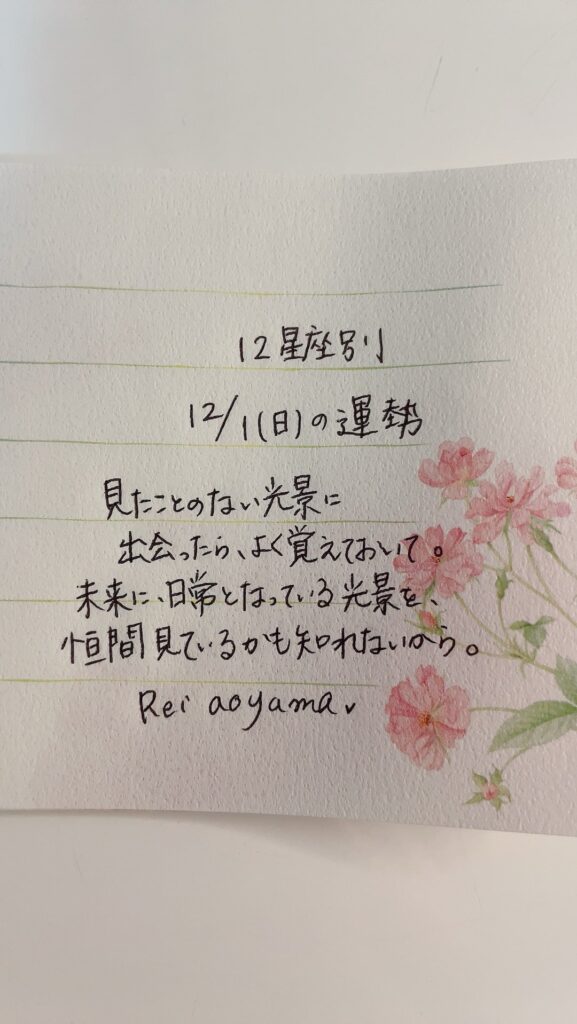 12星座別
12/1(日)の運勢
見たことのない光景に
出会ったら、よく覚えておいて。
未来に、日常となっている光景を、
恒間見ているかも知れないから。
Rei aoyama